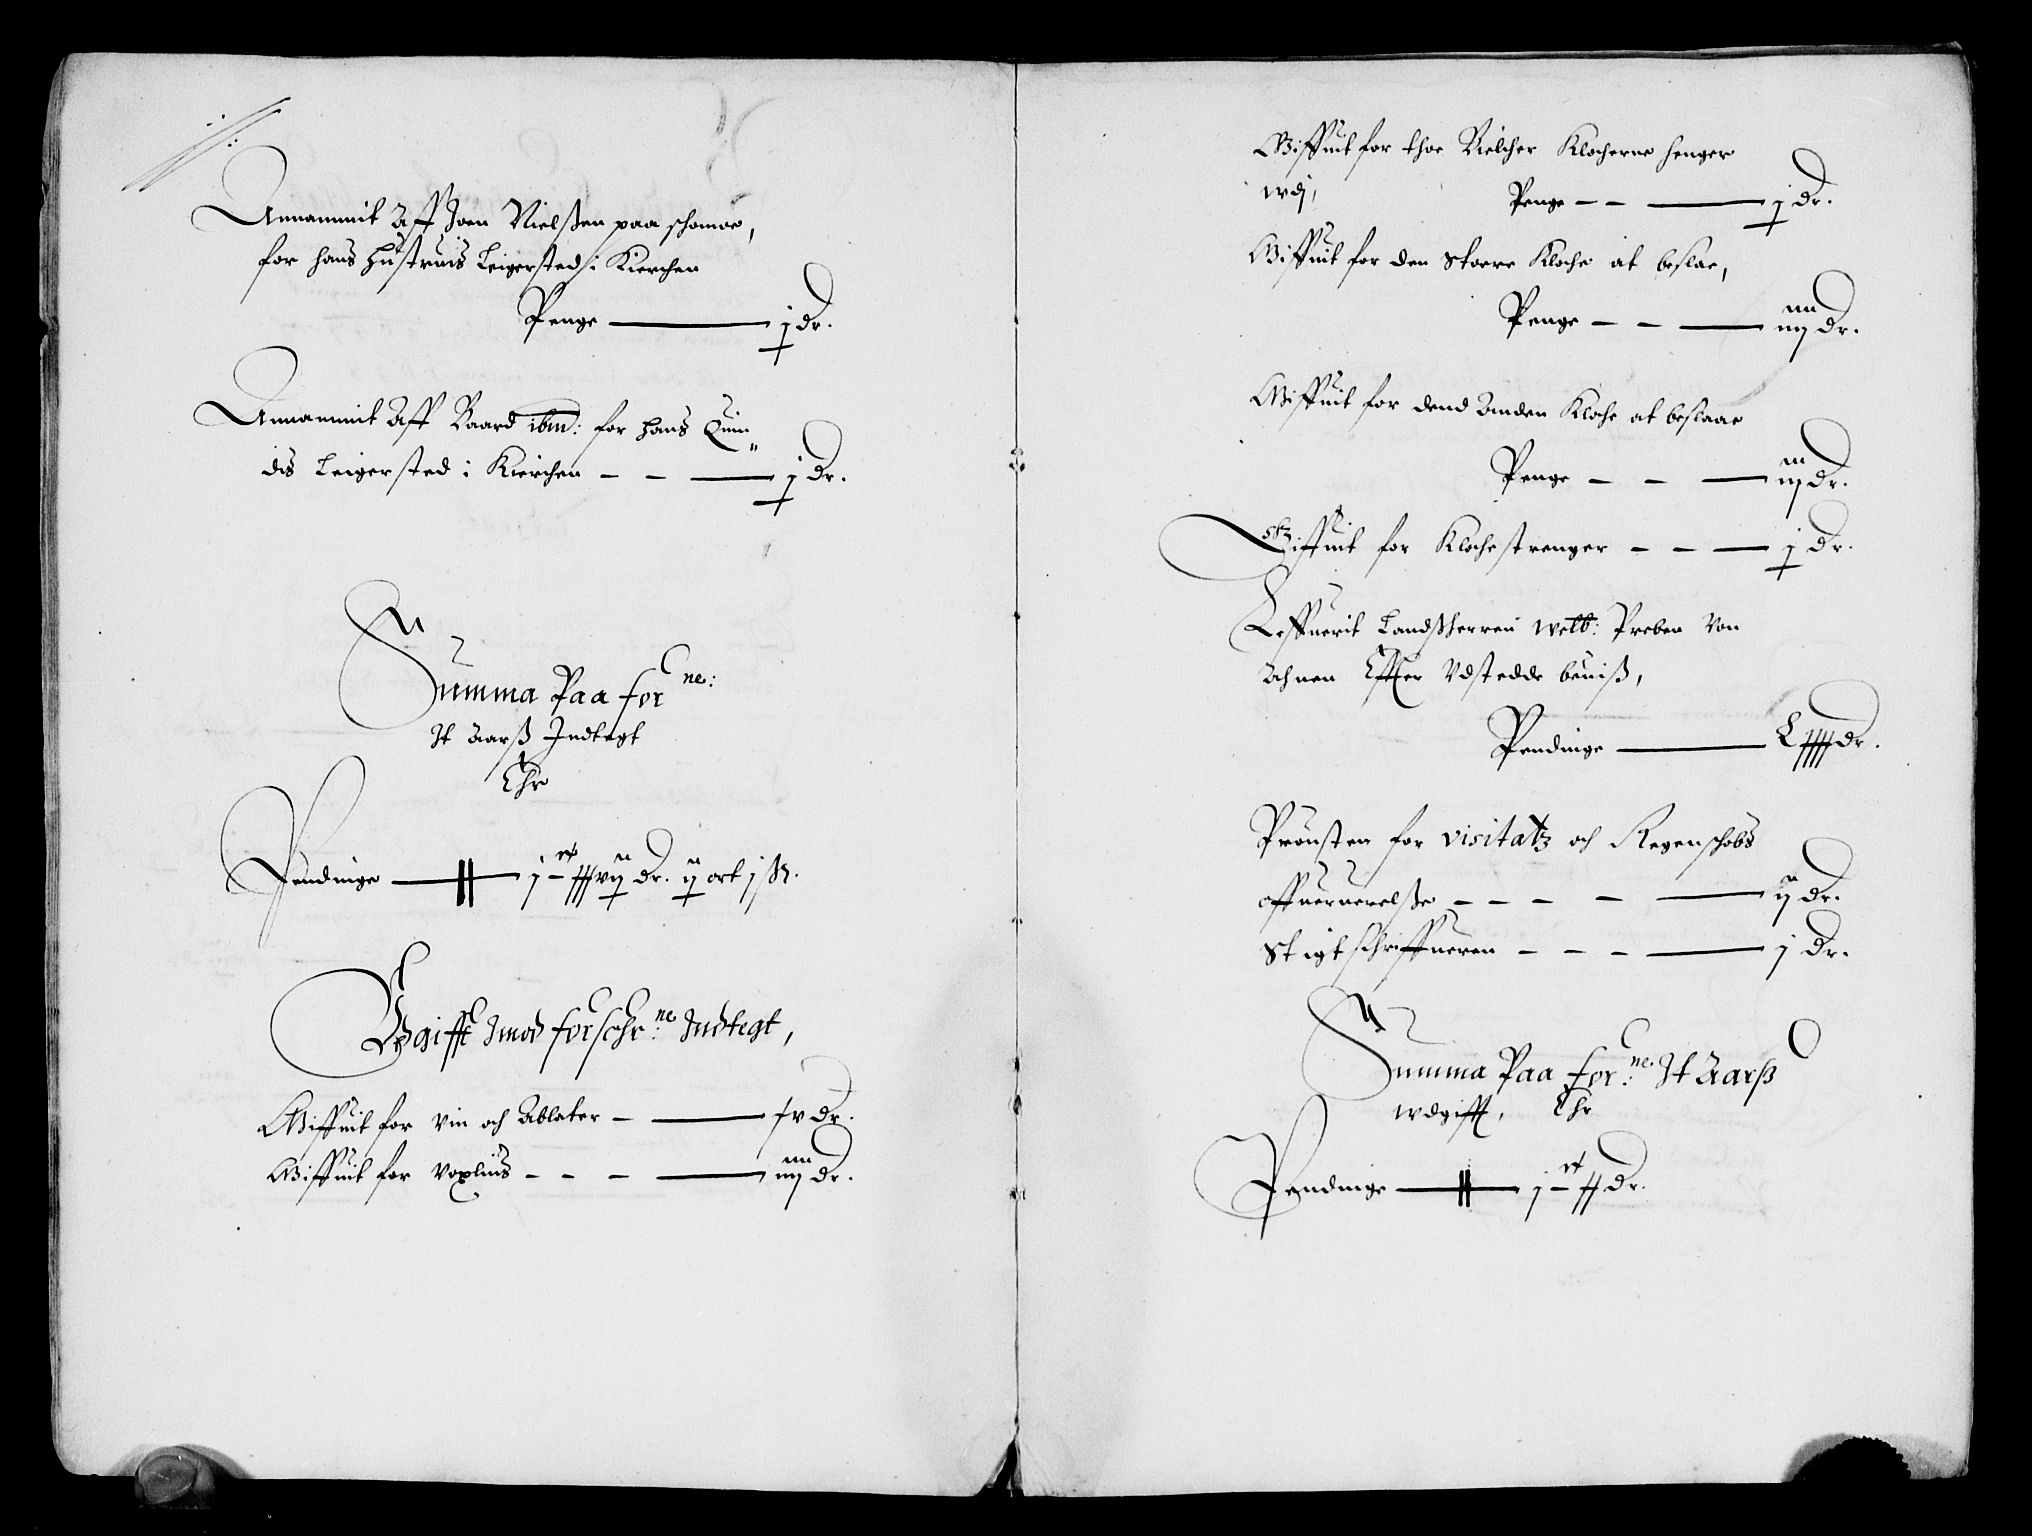 Annammit Aff Joen Nielßen paa schomoe,
for hans Hustruis Leigersted i Kierchen
Penge — j dr.
Annammit Aff Baard ibm: for hans Quin„
dis Leigersted i Kierchen – – — j dr.
Summa Paa for ne:
It Aarß Indtegt
Ehr
Pendinge — dr. ij ort j ß.
Vdgifft Imod forschr ne: Indtegt,
Giffuit for vin och Ablater – — xv dr.
Giffuit for voxlius – – – — iiij dr.
Giffuit for thoe Bielcher Klocherne henger
wdj, Penge – – — j dr.
Giffuit for den Stoere Kloche at beslae,
Penge – – — iiij dr.
Giffuit for dend Anden Kloche at beslaae
Penge – – — iij dr.
Giffuit for Klochestrenger – – — j dr.
Leffuerit Landßherren welb: Preben Von
Ahnen Effter Vdstedde beuiß,
Pendinge — Lxxxx dr.
Prousten for visitatz och Regenschobs
offueruerelße – – – – — ij dr.
Stigtschriffueren – – – — j dr.
Summa Paa for: ne. It Aarß
wdgifft, Ehr
Pendinge — dr.